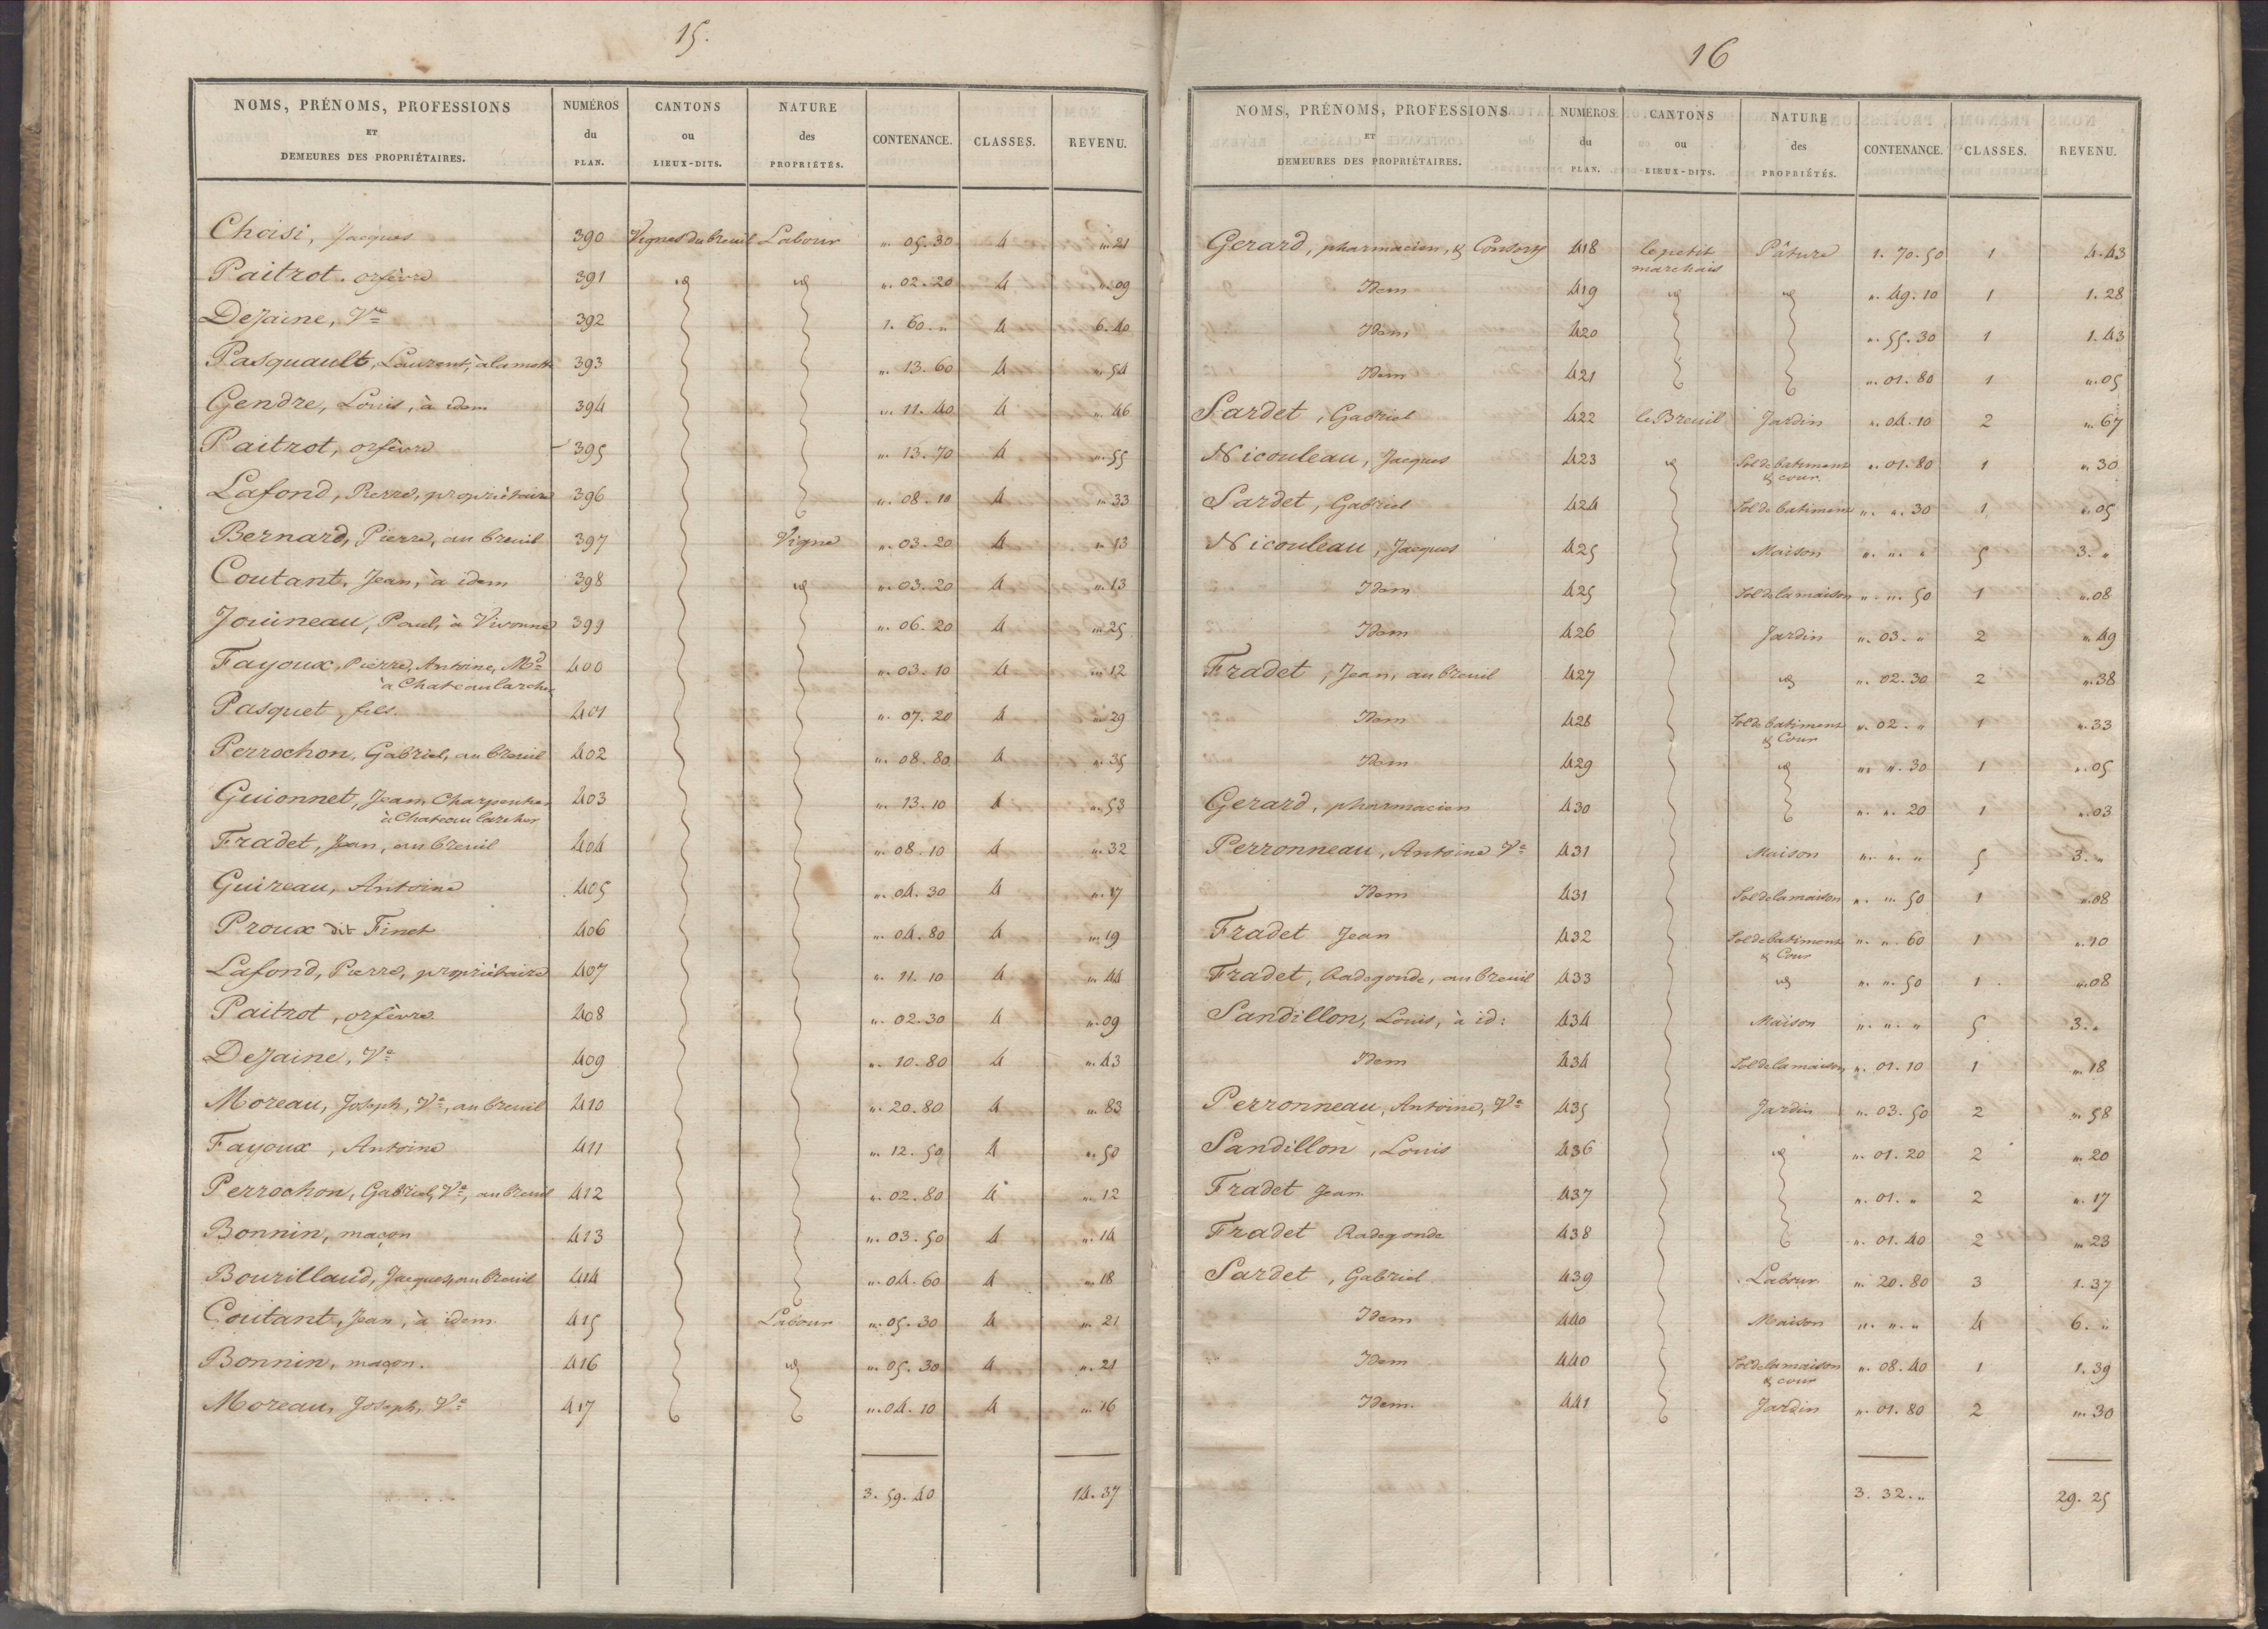 15.
NOMS, PRÉNOMS, PROFESSIONS ET DEMEURES DES PROPRIÉTAIRES. | NUMÉROS du PLAN. | CANTONS ou LIEUX-DITS. | NATURE des PROPRIÉTÉS. | CONTENANCE. | CLASSES. | REVENU.
Choisi, Jacques 390 Vignes du breuil Labour „. 05. 30 4 „. 21
Paitrot. orfèvre 391 id id „. 02. 20 4 „. 09
Dejaine, Ve 392 1. 60. „ 4 6. 40
Pasquault, Laurent, à la motte 393 „. 13. 60 4 „. 54
Gendre, Louis, à idem 394 „. 11. 40 4 „. 46
Paitrot, orfèvre 395 „. 13. 70 4 „. 55
Lafond, Pierre, propriétaire 396 „. 08. 10 4 „. 33
Bernard, Pierre, au breuil 397 Vigne „. 03. 20 4 „. 13
Coutant, Jean, à idem 398 id „. 03. 20 4 „. 13
Jouineau, Paul, à Vivonne 399 „. 06. 20 4 „. 25
Fayoux, Pierre, Antoine, Md 400 „. 03. 10 4 „. 12
à Chateaularcher
Pasquet, fils. 401 „. 07. 20 4 „. 29
Perrochon, Gabriel, au breuil 402 „. 08. 80 4 „. 35
Guionnet, Jean, Charpentier 403 „. 13. 10 4 „. 53
à Chateaularcher
Fradet, Jean, au breuil 404 „. 08. 10 4 „. 32
Guireau, Antoine 405 „. 04. 30 4 „. 17
Proux dit Finet 406 „. 04. 80 4 „. 19
Lafond, Pierre, propriétaire 407 „. 11. 10 4 „. 44
Paitrot, orfèvre 408 „. 02. 30 4 „. 09
Dejaine, Ve 409 „. 10. 80 4 „. 43
Moreau, Joseph, Ve, au breuil 410 „. 20. 80 4 „. 83
Fayoux, Antoine 411 „. 12. 50 4 „. 50
Perrochon, Gabriel, Ve, au breuil 412 „. 02. 80 4 „. 12
Bonnin, maçon 413 „. 03. 50 4 „. 14
Bourillaud, Jacques, au breuil 414 „. 04. 60 4 „. 18
Coutant, Jean, à idem 415 Labour „. 05. 30 4 „. 21
Bonnin, maçon. 416 id „. 05. 30 4 „. 21
Moreau, Joseph, Ve 417 „. 04. 10 4 „. 16
3. 59. 40 14. 37
16
NOMS, PRÉNOMS, PROFESSIONS ET DEMEURES DES PROPRIÉTAIRES. | NUMÉROS du PLAN. | CANTONS ou LIEUX-DITS. | NATURE des PROPRIÉTÉS. | CONTENANCE. | CLASSES. | REVENU.
Gerard, pharmacien, & Consorts 418 le petit marchais Pâture 1. 70. 50 1 4. 43
Idem 419 id id „. 49. 10 1 1. 28
Idem 420 „. 55. 30 1 1. 43
Idem 421 „. 01. 80 1 „. 05
Sardet, Gabriel 422 le Breuil Jardin „. 04. 10 2 „. 67
Nicouleau, Jacques 423 id Sol de batiment & cour „. 01. 80 1 „. 30
Sardet, Gabriel 424 Sol de batiment „. „. 30 1 „. 05
Nicouleau, Jacques 425 Maison „. „. „ 5 3. „
Idem 425 Sol de la maison „. „. 50 1 „. 08
Idem 426 Jardin „. 03. „ 2 „. 49
Fradet, Jean, au breuil 427 id „. 02. 30 2 „. 38
Idem 428 Sol de batiment & Cour „. 02. „ 1 „. 33
Idem 429 id „. „. 30 1 „. 05
Gerard, pharmacien 430 „. „. 20 1 „. 03
Perronneau, Antoine Ve 431 Maison „. „. „ 5 3. „
Idem 431 Sol de la maison „. „. 50 1 „. 08
Fradet Jean 432 Sol de batiment & Cour „. „. 60 1 „. 10
Fradet, Radegonde, au breuil 433 id „. „. 50 1 „. 08
Sandillon, Louis, à id: 434 Maison „. „. „ 5 3. „
Idem 434 Sol de la maison „. 01. 10 1 „. 18
Perronneau, Antoine, Ve 435 Jardin „. 03. 50 2 „. 58
Sandillon, Louis 436 id „. 01. 20 2 „. 20
Fradet Jean 437 „. 01. „ 2 „. 17
Fradet Radegonde 438 „. 01. 40 2 „. 23
Sardet, Gabriel 439 Labour „. 20. 80 3 1. 37
Idem 440 Maison „. „. „ 4 6. „
Idem 440 Sol de la maison & cour „. 08. 40 1 1. 39
Idem. 441 Jardin „. 01. 80 2 „. 30
3. 32. „ 29. 25